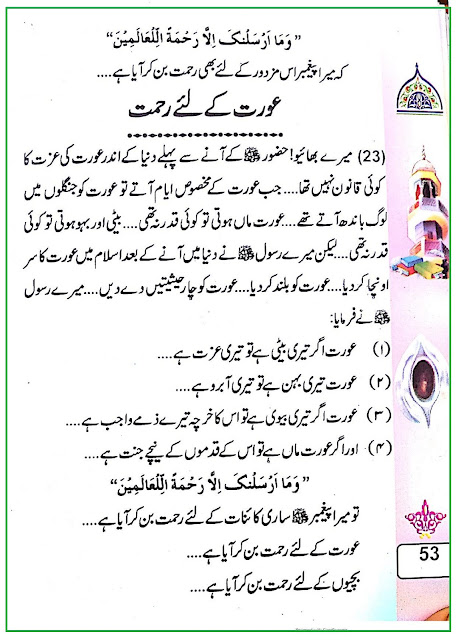 ” وَمَا اَرْسَلْنٰکَ اِلَّا رَحْمَةً الِّلْعَالَمِیْنَ“
کہ میرا پیغمبر اس مزدور کے لئے بھی رحمت بن کر آیا ہے....
عورت کے لئے رحمت
(23) میرے بھائیو! حضور ﷺ کے آنے سے پہلے دنیا کے اندر عورت کی عزت کا
کوئی قانون نہیں تھا.... جب عورت کے مخصوص ایام آتے تو عورت کو جنگلوں میں
لوگ باندھ آتے تھے.... عورت ماں ہوتی تو کوئی قدر نہ تھی.... بیٹی اور بہو ہوتی تو کوئی
قدر نہ تھی.... لیکن میرے رسول ﷺ نے دنیا میں آنے کے بعد اسلام میں عورت کا سر
اونچا کر دیا.... عورت کو بلند کر دیا.... عورت کو چار حیثیتیں دے دیں.... میرے رسول
ﷺ نے فرمایا:
(۱) عورت اگر تیری بیٹی ہے تو تیری عزت ہے....
(۲) عورت تیری بہن ہے تو تیری آبرو ہے....
(۳) عورت اگر تیری بیوی ہے تو اس کا خرچہ تیرے ذمے واجب ہے....
(۴) اور اگر عورت ماں ہے تو اس کے قدموں کے نیچے جنت ہے....
” وَمَا اَرْسَلْنٰکَ اِلَّا رَحْمَةً الِّلْعَالَمِیْنَ“
تو میرا پیغمبر ﷺ ساری کائنات کے لئے رحمت بن کر آیا ہے....
عورت کے لئے رحمت بن کر آیا ہے....
بچیوں کے لئے رحمت بن کر آیا ہے....
53